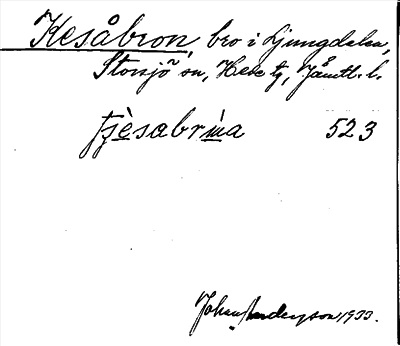 Kesåbron, bro i Ljungdalen,
Storsjö sn, Hede tg, Jämtl. l.
tjèsabrúa 523
Johan Anderson 1933.